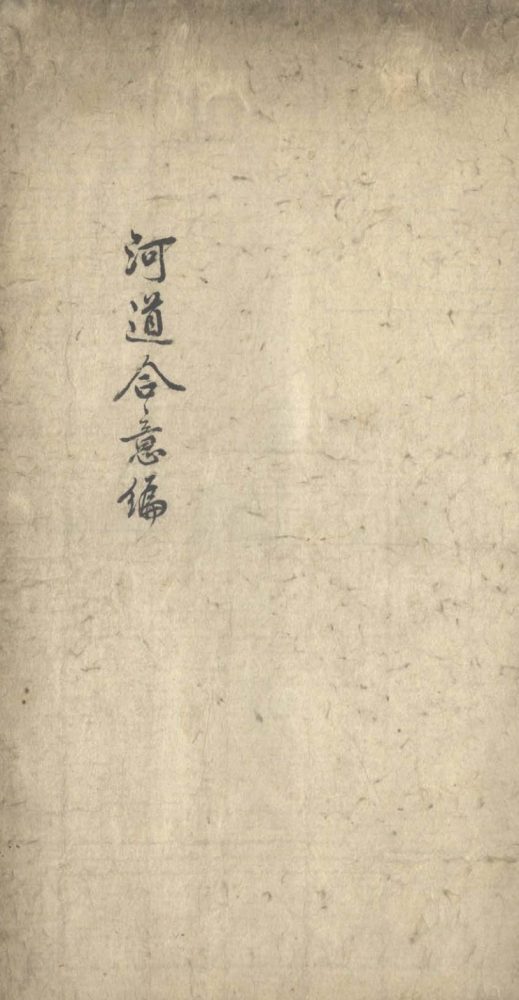 河道合意編